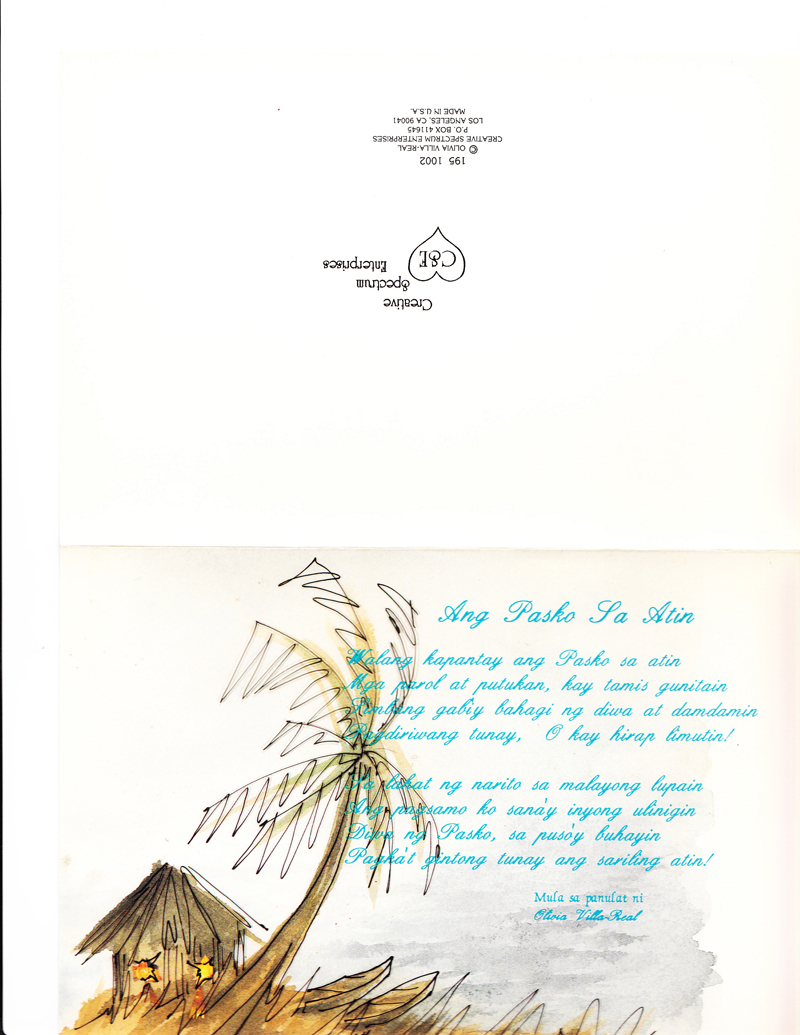 Creative
Spectrum
Enterprises
CSE
195 1002
© OLIVIA VILLA-REAL
CREATIVE SPECTRUM ENTERPRISES
P.O. BOX 411645
LOS ANGELES, CA 90041
MADE IN U.S.A.
Ang Pasko Sa Atin
Walang kapantay ang Pasko sa atin
Mga parol at putukan, kay tamis gunitain
Simbang gabi'y bahagi ng diwa at damdamin
Pagdiriwang tunay, O kay hirap limutin!
Sa lahat ng narito sa malayong lupain
Ang pagsamo ko sana'y inyong ulinigin
Diwa ng Pasko, sa puso'y buhayin
Pagka't gintong tunay ang sariling atin!
Mula sa panulat ni
Olivia Villa-Real